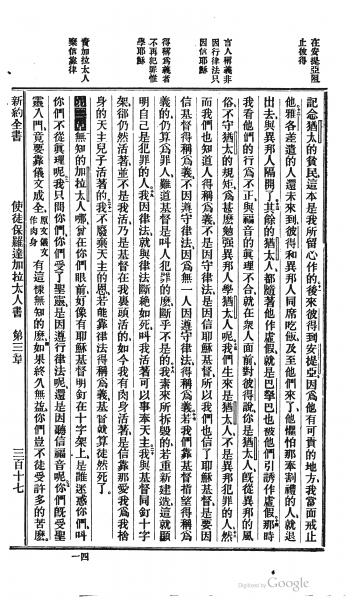 在安提亞阻
止彼得
言人稱義非
因行律法只
因信耶穌
得稱爲義者
不再犯罪惟
學耶穌
責加拉太人
棄信靠律
記念猶太的貧民這本是我所留心作的後來彼得到安提亞因爲他有可責的地方我當面戒止
他雅各差遣的人還未來到彼得和異邦人同席吃飯及至他們來了他懼怕那奉割禮的人就退
出去與異邦人隔開了其餘的猶太人都隨著他作虛假就是巴拏巴也被他們引誘作虛假那時
我看他們的行爲不正與福音的眞理不合就在衆人面前對彼得說你是猶太人旣從異邦的風
俗不守猶太的規矩爲甚麼勉强異邦人學猶太人呢我們生來是猶太人不是異邦犯罪的人然
而我們也知道人得稱爲義不是因守律法是因信耶穌基督所以我們也信了耶穌基督是要因
信基督得稱爲義不因遵守律法因爲無一人因遵守律法得稱爲義若我們靠基督指望得稱爲
義的仍算爲罪人難道基督是叫人犯罪的麼斷乎不是的我素來所拆毀的若重新建造這就顯
明自己是犯罪的人我因律法就與律法斷絶如死叫我活著可以事奉天主我與基督同釘十字
架卻仍然活著並不是我活乃是基督在我裏頭活的如今我有肉身活著是信靠那愛我爲我捨
身的天主兒子活著的我不廢棄天主的恩若能靠律法得稱爲義基督就算徒然死了
無知的加拉太人哪曾在你們眼前好像有耶穌基督明釘在十字架上是誰迷惑你們叫
你們不從眞理呢我只問你們你們受了聖靈是因遵行律法呢還是因聽信福音呢你們旣受聖
靈入門竟要靠儀文成全原文儀文作肉身有這樣無知的麼如果終久無益你們豈不徒受許多的苦麼
新約全書 使徒保羅達加拉太人書 第三章 三百十七
四一
Digitized by Google